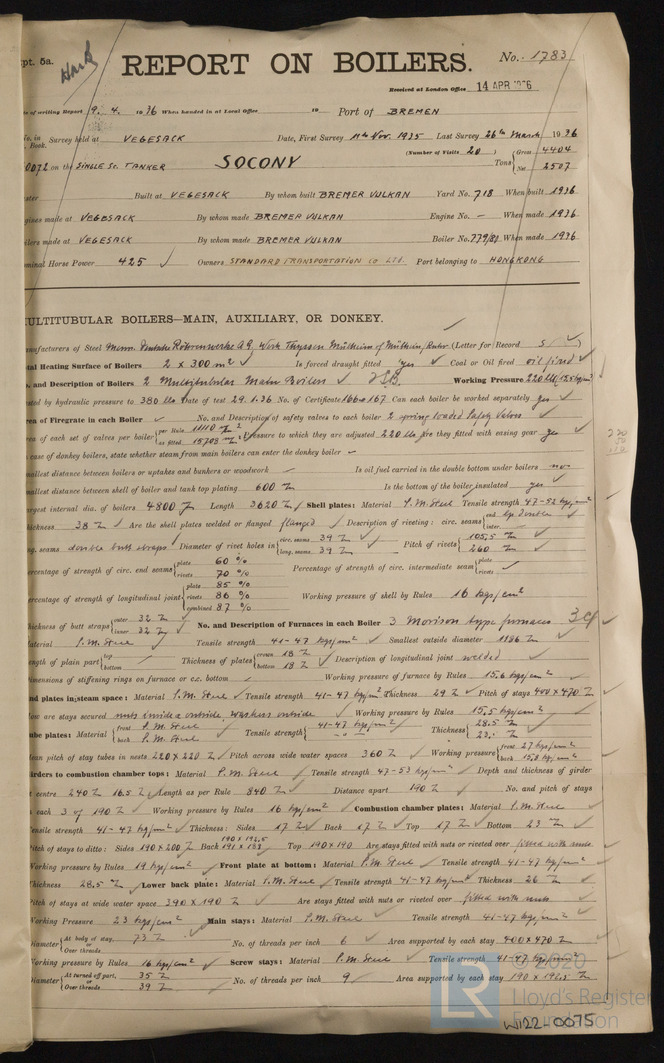 pt. 5a.
REPORT ON BOILERS.
No. 1783
Received at London Office 14 APR 1936
of writing Report 9. 4. 1936 When handed in at Local Office 19 Port of BREMEN
No. in Book. Survey held at VEGESACK Date, First Survey 11th Nov. 1935 Last Survey 26th March 1936
on the SINGLE SC. TANKER SOCONY (Number of Visits 20) Tons Gross 4404 Net 2507
Built at VEGESACK By whom built BREMER VULKAN Yard No. 718 When built 1936
gines made at VEGESACK By whom made BREMER VULKAN Engine No. - When made 1936
ilers made at VEGESACK By whom made BREMER VULKAN Boiler No. 779/80 When made 1936
minal Horse Power 425 Owners STANDARD TRANSPORTATION CO LTD. Port belonging to HONGKONG
ULTITUBULAR BOILERS—MAIN, AUXILIARY, OR DONKEY.
nufacturers of Steel (Letter for Record S)
tal Heating Surface of Boilers 2 x 300 m² Is forced draught fitted yes Coal or Oil fired oil fired
. and Description of Boilers 2 Multitubular Main Boilers Working Pressure 220 lbs
ted by hydraulic pressure to 380 lbs Date of test 29.1.36 No. of Certificate 166 & 167 Can each boiler be worked separately yes
rea of Firegrate in each Boiler - No. and Description of safety valves to each boiler 2 spring loaded Safety Valves
rea of each set of valves per boiler per Rule as fitted Pressure to which they are adjusted 220 lbs Are they fitted with easing gear yes
case of donkey boilers, state whether steam from main boilers can enter the donkey boiler -
mallest distance between boilers or uptakes and bunkers or woodwork - Is oil fuel carried in the double bottom under boilers no
mallest distance between shell of boiler and tank top plating 600 Is the bottom of the boiler insulated yes
argest internal dia. of boilers 4800 Length 3620 Shell plates: Material S.M. Steel Tensile strength 47-52 kgs/mm²
hickness 38 Are the shell plates welded or flanged flanged Description of riveting: circ. seams end lap double inter. -
ng. seams double butt straps Diameter of rivet holes in circ. seams 39 long. seams 39 Pitch of rivets 105,5 260
ercentage of strength of circ. end seams plate 60 % rivets 70 % Percentage of strength of circumferential intermediate seam plate rivets -
ercentage of strength of longitudinal joint plate 85 % rivets 86 % combined 87 % Working pressure of shell by Rules 16 kgs/cm²
hickness of butt straps outer 32 inner 32 No. and Description of Furnaces in each Boiler 3 Morison type furnaces
aterial S.M. Steel Tensile strength 41-47 kgs/mm² Smallest outside diameter 1186
ength of plain part top bottom Thickness of plates crown 18 bottom 18 Description of longitudinal joint welded
imensions of stiffening rings on furnace or c.c. bottom - Working pressure of furnace by Rules 15.6 kgs/cm²
nd plates in steam space: Material S.M. Steel Tensile strength 41-47 kgs/mm² Thickness 29 Pitch of stays 400 x 470
ow are stays secured nuts inside & outside, washers outside Working pressure by Rules 15,5 kgs/cm²
ube plates: Material front S.M. Steel back S.M. Steel Tensile strength 41-47 kgs/mm² Thickness 28.5
ean pitch of stay tubes in nests 220 x 220 Pitch across wide water spaces 360 Working pressure front 27 kgs/cm² back
irders to combustion chamber tops: Material S.M. Steel Tensile strength 47-53 kgs/mm² Depth and thickness of girder
t centre 240 Length as per Rule 840 Distance apart 190 No. and pitch of stays
each 3 of 190 Working pressure by Rules 16 kgs/cm² Combustion chamber plates: Material S.M. Steel
ensile strength 41-47 kgs/mm² Thickness: Sides 17 Back 17 Top 17 Bottom 23
itch of stays to ditto: Sides 190 x 200 Back Top 190 x 190 Are stays fitted with nuts or riveted over fitted with nuts
Working pressure by Rules 19 kgs/cm² Front plate at bottom: Material S.M. Steel Tensile strength 41-47 kgs/mm²
Thickness 28,5 Lower back plate: Material S.M. Steel Tensile strength 41-47 kgs/mm² Thickness 26
Pitch of stays at wide water space 390 x 190 Are stays fitted with nuts or riveted over fitted with nuts
Working Pressure 23 kgs/cm² Main stays: Material S.M. Steel Tensile strength 41-47 kgs/mm²
Diameter At body of stay, or Over threads 73 No. of threads per inch 6 Area supported by each stay 400 x 470
Working pressure by Rules 16 kgs/cm² Screw stays: Material S.M. Steel Tensile strength 41-47 kgs/mm²
Diameter At turned off part, or Over threads 35 39 No. of threads per inch 9 Area supported by each stay
© 2020
Lloyd's Register
Foundation
W122-0075